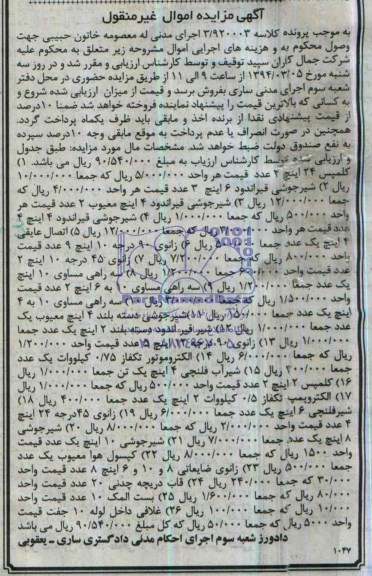 آگهی مزایده اموال غیرمنقول
به موجب پرونده کلاسه ۳/۹۲۰۰۰۳ اجرای مدنی له معصومه خاتون حبیبی جهت
وصول محکوم به و هزینه های اجرایی اموال مشروحه زیر متعلق به محکوم علیه
شرکت جمال کاران سپید توقیف و توسط کارشناس ارزیابی و مقرر شد و در روز سه
شنبه مورخ ۱۳۹۴/۰۳/۰۵ از ساعت ۹ الی ۱۱ از طریق مزایده حضوری در محل دفتر
شعبه سوم اجرای مدنی ساری بفروش برسد و قیمت از میزان ارزیابی شده شروع و
به کسانی که بالاترین قیمت را پیشنهاد نماینده فروخته خواهد شد ضمنا ۱۰درصد
از قیمت پیشنهادی نقدا از برنده اخذ و مابقی باید ظرف یکماه پرداخت گردد.
همچنین در صورت انصراف یا عدم پرداخت به موقع مابقی وجه ۱۰درصد سپرده
به نفع صندوق دولت ضبط خواهد شد. مشخصات مال مورد مزایده: طبق جدول
و ارزیابی شده توسط کارشناس ارزیاب به مبلغ ۹۰/۵۴۰/۰۰۰ ریال می باشد. ۱)
کلمپس ۲۴ اینچ ۲ عدد قیمت هر واحد ۵/۰۰۰/۰۰۰ ریال که جمعا ۱۰/۰۰۰/۰۰۰
ریال ۲) شیرجوشی قیراندود ۶ اینچ ۳ عدد قیمت هر واحد ۴/۰۰۰/۰۰۰ ریال که
جمعا ۱۲/۰۰۰/۰۰۰ ریال ۳) شیرجوشی قیراندود ۴ اینچ معیوب ۲ عدد قیمت هر
واحد ۵۰۰/۰۰۰ ریال که جمعا ۱/۰۰۰/۰۰۰ ریال ۴) شیرجوشی قیراندود ۴ اینچ ۴
عدد قیمت هر واحد ریال که جمعا ۱۲/۰۰۰/۰۰۰ ریال ۵) اتصال عایقی
۴ اینچ یک عدد جمعا ریال ۶) زانوی ۹۰ درجه ۱۰ اینچ ۹ عدد قیمت
واحد ۸۰۰/۰۰۰ ریال که جمعا ۷/۲۰۰/۰۰۰ ریال ۷) زانوی ۴۵ درجه ۱۰ اینچ ۲
عدد قیمت واحد ریال که جمعا ۱/۲۰۰/۰۰۰ ریال ۸) سه راهی مساوی ۱۰ اینچ
یک عدد جمعا ۱/۲۰۰/۰۰۰ ریال ۹) سه راهی مساوی ۱۰ به ۶ اینچ ۲ عدد قیمت
واحد ۱/۵۰۰/۰۰۰ ریال که جمعا ریال سه راهی مساوی ۱۰ به ۴
اینچ یک عدد جمعا ریال ۱۱) شیرجوشی دسته بلند ۴ اینچ معیوب یک
عدد جمعا ۱/۰۰۰/۰۰۰ ریال ۱۲) شیر قیراندود دسته بلند ۲ اینچ یک عدد جمعا
۱/۰۰۰/۰۰۰ ریال ۱۳) زانوی ۹۰ درجه اینچ عدد قیمت واحد ۱/۲۰۰/۰۰۰
ریال که جمعا ۶/۰۰۰/۰۰۰ ریال ۱۴) الکتروموتور تکفاز ۰/۷۵ کیلووات یک عدد
جمعا ۲۰۰/۰۰۰ ریال ۱۵) شیرآب فلنچی ۴ اینچ یک تن جمعا ۱/۰۰۰/۰۰۰ ریال
۱۶) کلمپس ۲ اینچ ۲ عدد قیمت واحد ۵۰۰/۰۰۰ ریال که جمعا ۱/۰۰۰/۰۰۰ ریال
۱۷) الکتروپمپ تکفاز ۰/۵ کیلووات ۲ اینچ یک عدد جمعا ۴۰۰/۰۰۰ ریال ۱۸)
شیرفلنچی ۶ اینچ یک عدد جمعا ۶/۰۰۰/۰۰۰ ریال ۱۹) زانوی ۴۵درجه ۲۴ اینچ
۴ عدد قیمت واحد ۲/۰۰۰/۰۰۰ ریال که جمعا ۸/۰۰۰/۰۰۰ ریال ۲۰) شیرجوشی
۸ اینچ یک عدد جمعا ۷/۰۰۰/۰۰۰ ریال ۲۱) شیرجوشی ۱۰ اینچ یک عدد قیمت
واحد ۱۵۰۰ ریال که جمعا ۸/۰۰۰/۰۰۰ ریال ۲۲) کپسول هوا معیوب یک عدد
جمعا ۵۰۰/۰۰۰ ریال ۲۳) زانوی ضایعاتی ۸ و ۱۰ و ۶ اینچ ۸ عدد قیمت واحد
۳۰/۰۰۰ که جمعا ۲۴۰/۰۰۰ ریال ۲۴) قاب دریچه چدنی ۲۰ عدد قیمت واحد
۸۰/۰۰۰ ریال که جمعا ۱/۶۰۰/۰۰۰ ریال ۲۵) بست المک ۱۰ عدد قیمت واحد
۱۰/۰۰۰ ریال که جمعا ۱۰۰/۰۰۰ ریال ۲۶) غلافی داخل لوله ۱۰ جفت قیمت
واحد ۵۰۰۰ ریال که جمعا ۵۰/۰۰۰ ریال که کل مبلغ ۹۰/۵۴۰/۰۰۰ ریال می باشد
دادورز شعبه سوم اجرای احکام مدنی دادگستری ساری ـ یعقوبی
۱۰۴۷